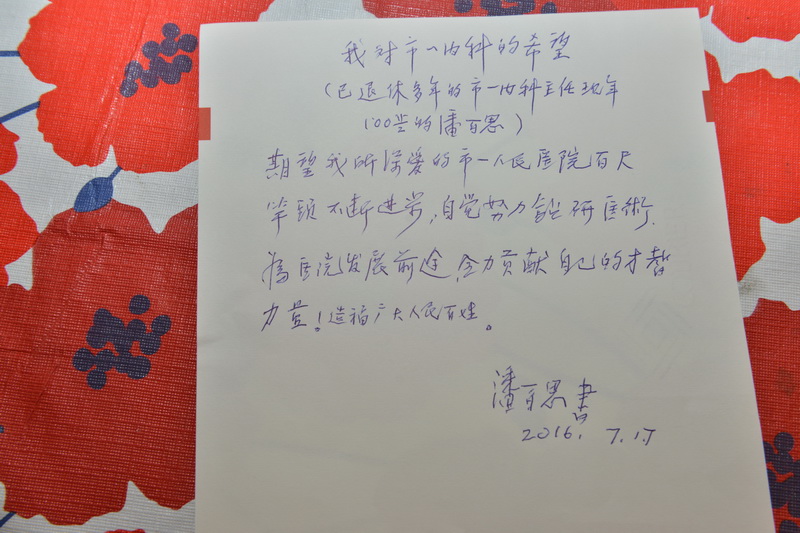 我对市一内科的希望
（已退休多年的市一内科主任现年
100岁的潘百思）
期望我所深爱的市一人民医院百尺
竿頭不断进步,自觉努力鑽研医術.
為医院发展前途,全力贡献自己的才智
力量!造福广大人民百姓。
潘百思書
2016. 7.